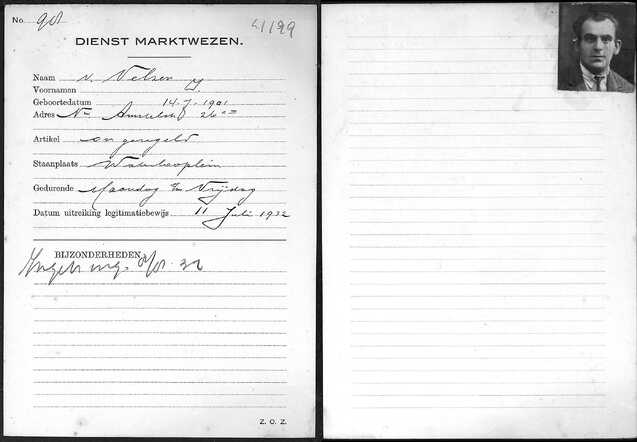 No. 901
41199
DIENST MARKTWEZEN.
Naam v. Velsen
Voornamen J.
Geboortedatum 14-7-1901
Adres Nwe Amstelstr
Artikel ongeregeld
Staanplaats Waterlooplein
Gedurende Maandag t/m Vrijdag
Datum uitreiking legitimatiebewijs 11 Juli 1932
BIJZONDERHEDEN
32
Z. O. Z.